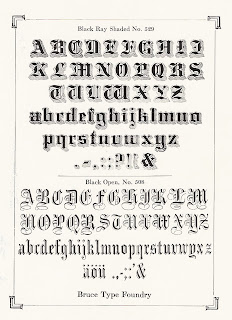 Black Ray Shaded No. 529
ABCDEFGHIJ
KLMNOPQRS
TUVWXYZ
abcdefghijklmno
pqrstuvwxyz
.,-.:;?!&
Black Open, No. 508
ABCDEFGHIJKLM
NOPQRSTUVWXYZ
abcdefghijklmnopqrstuvwxyz
äöü .,-:;'&
Bruce Type Foundry